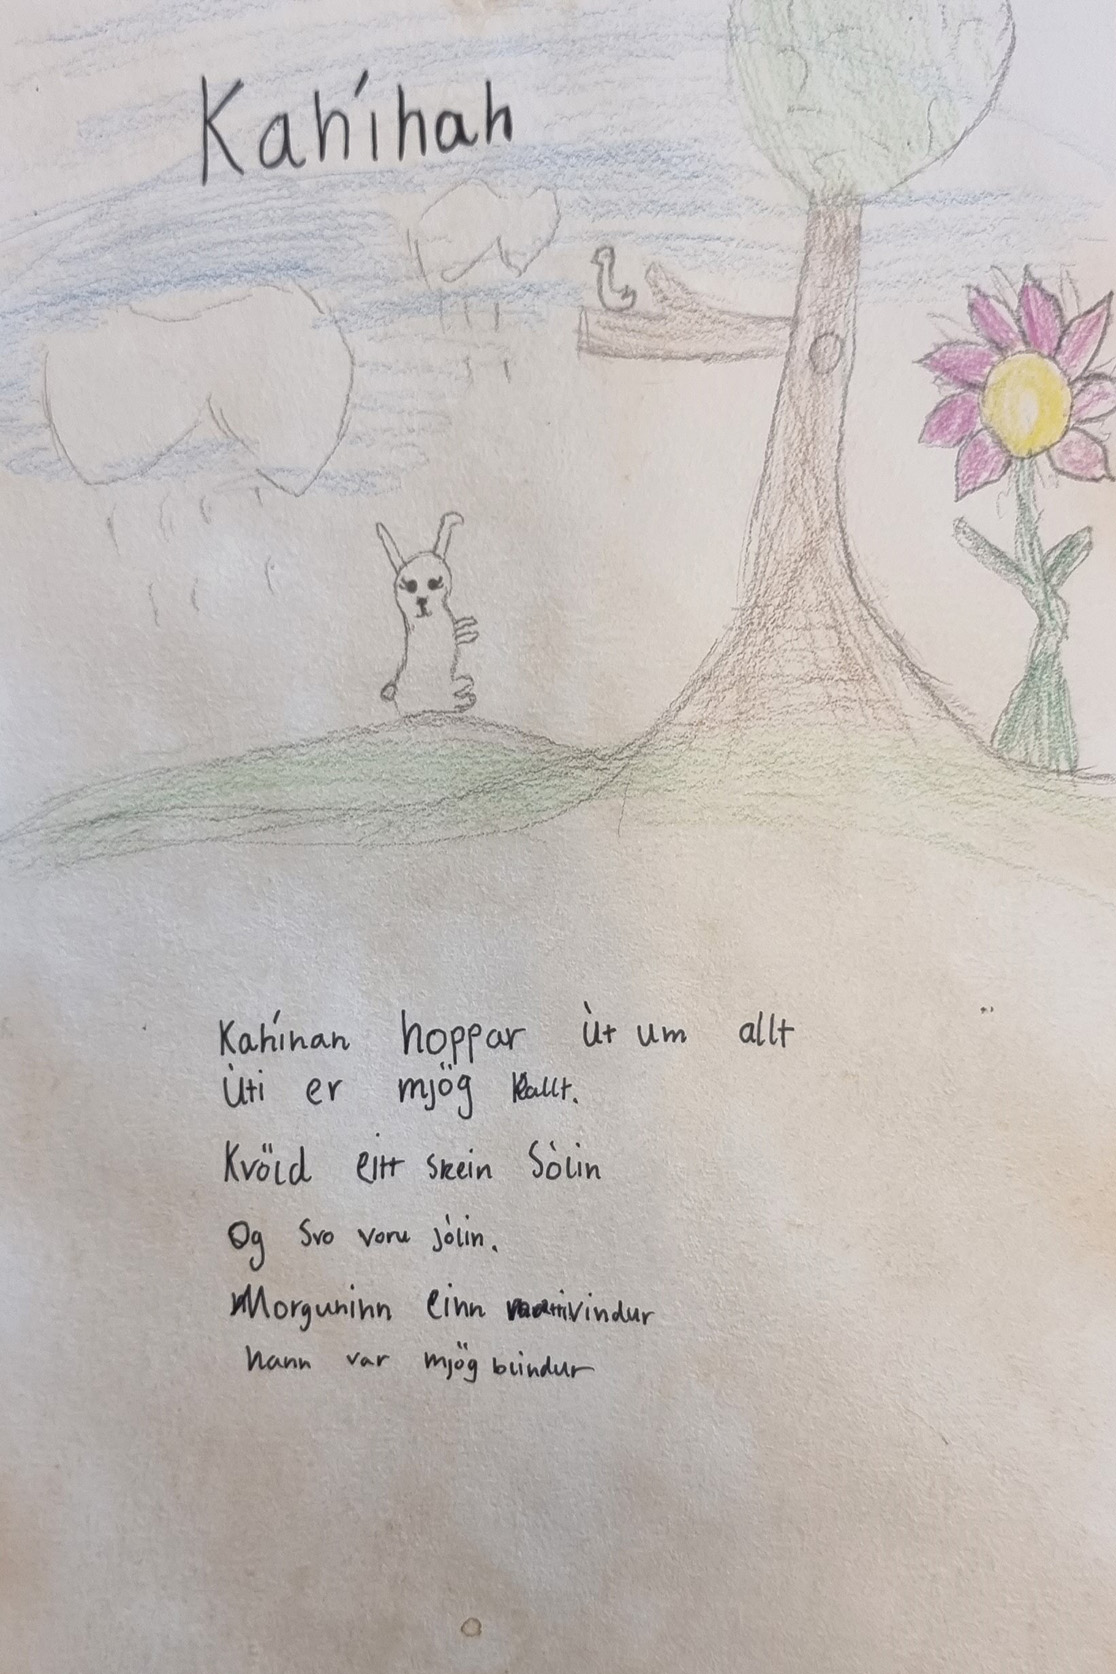 Kanínan
Kanínan hoppar út um allt
Úti er mjög kallt.
Kvöld eitt skein Sólin
Og Svo voru jólin.
Morguninn einn vindur
hann var mjög blindur